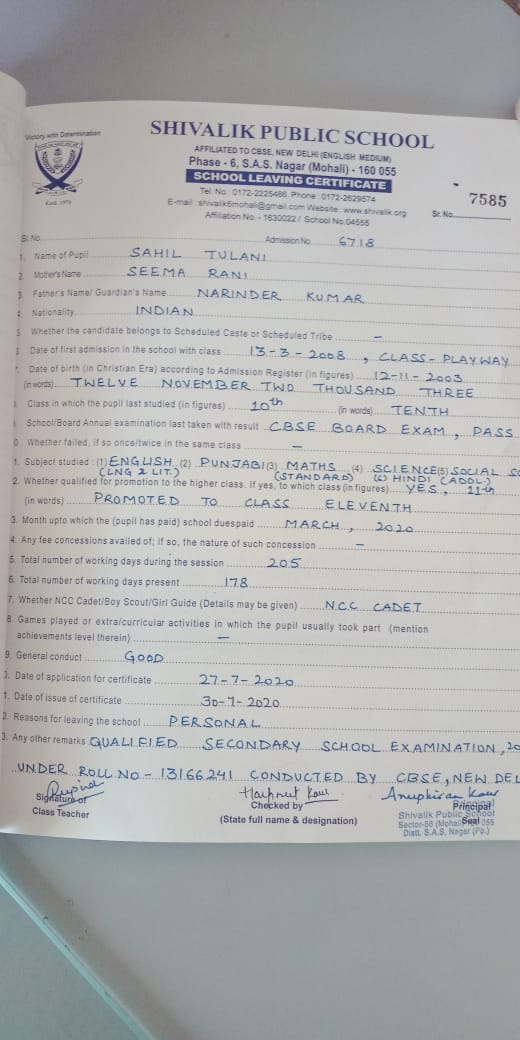 Victory with Determination
SHIVALIK PUBLIC SCHOOL
AFFILIATED TO CBSE, NEW DELHI (ENGLISH MEDIUM)
Phase - 6, S.A.S. Nagar (Mohali) - 160 055
SCHOOL LEAVING CERTIFICATE
Tel. No : 0172-2225466, Phone : 0172-2629574
E-mail : shivalik6mohali@gmail.com Website : www.shivalik.org
Affiliation No. - 1630022 / School No.04555
Estd. 1970
Sr. No. 7585
Sl. No. Admission No. 6718
1. Name of Pupil SAHIL TULANI
2. Mother's Name SEEMA RANI
3. Father's Name/ Guardian's Name NARINDER KUMAR
4. Nationality INDIAN
5. Whether the candidate belongs to Scheduled Caste or Scheduled Tribe –
Date of first admission in the school with class 13-3-2008, CLASS-PLAYWAY
Date of birth (in Christian Era) according to Admission Register (in figures) 12-11-2003
(in words) TWELVE NOVEMBER TWO THOUSAND THREE
Class in which the pupil last studied (in figures) 10th (in words) TENTH
School/Board Annual examination last taken with result CBSE BOARD EXAM, PASS
0. Whether failed, if so once/twice in the same class –
1. Subject studied : (1) ENGLISH (2) PUNJABI (3) MATHS (4) SCIENCE (5) SOCIAL
(LNG & LIT.) (STANDARD) (6) HINDI (ADDL.)
2. Whether qualified for promotion to the higher class. If yes, to which class (in figures) YES, 11th
(in words) PROMOTED TO CLASS ELEVENTH
3. Month upto which the (pupil has paid) school duespaid MARCH, 2020
4. Any fee concessions availed of; if so, the nature of such concession –
5. Total number of working days during the session 205
6. Total number of working days present 178
7. Whether NCC Cadet/Boy Scout/Girl Guide (Details may be given) NCC CADET
8. Games played or extra/curricular activities in which the pupil usually took part (mention
achievements level therein) –
9. General conduct GOOD
Date of application for certificate 27-7-2020
1. Date of issue of certificate 30-7-2020
2. Reasons for leaving the school PERSONAL
3. Any other remarks QUALIFIED SECONDARY SCHOOL EXAMINATION, 20
UNDER ROLL NO - 13166241 CONDUCTED BY CBSE, NEW DEL
Harpreet Kaur Anupkiran Kaur
Signature of Checked by Principal
Class Teacher (State full name & designation) Seal
Shivalik Public School
Sector-56 (Mohali) 160 055
Distt. S.A.S. Nagar (Pb.)